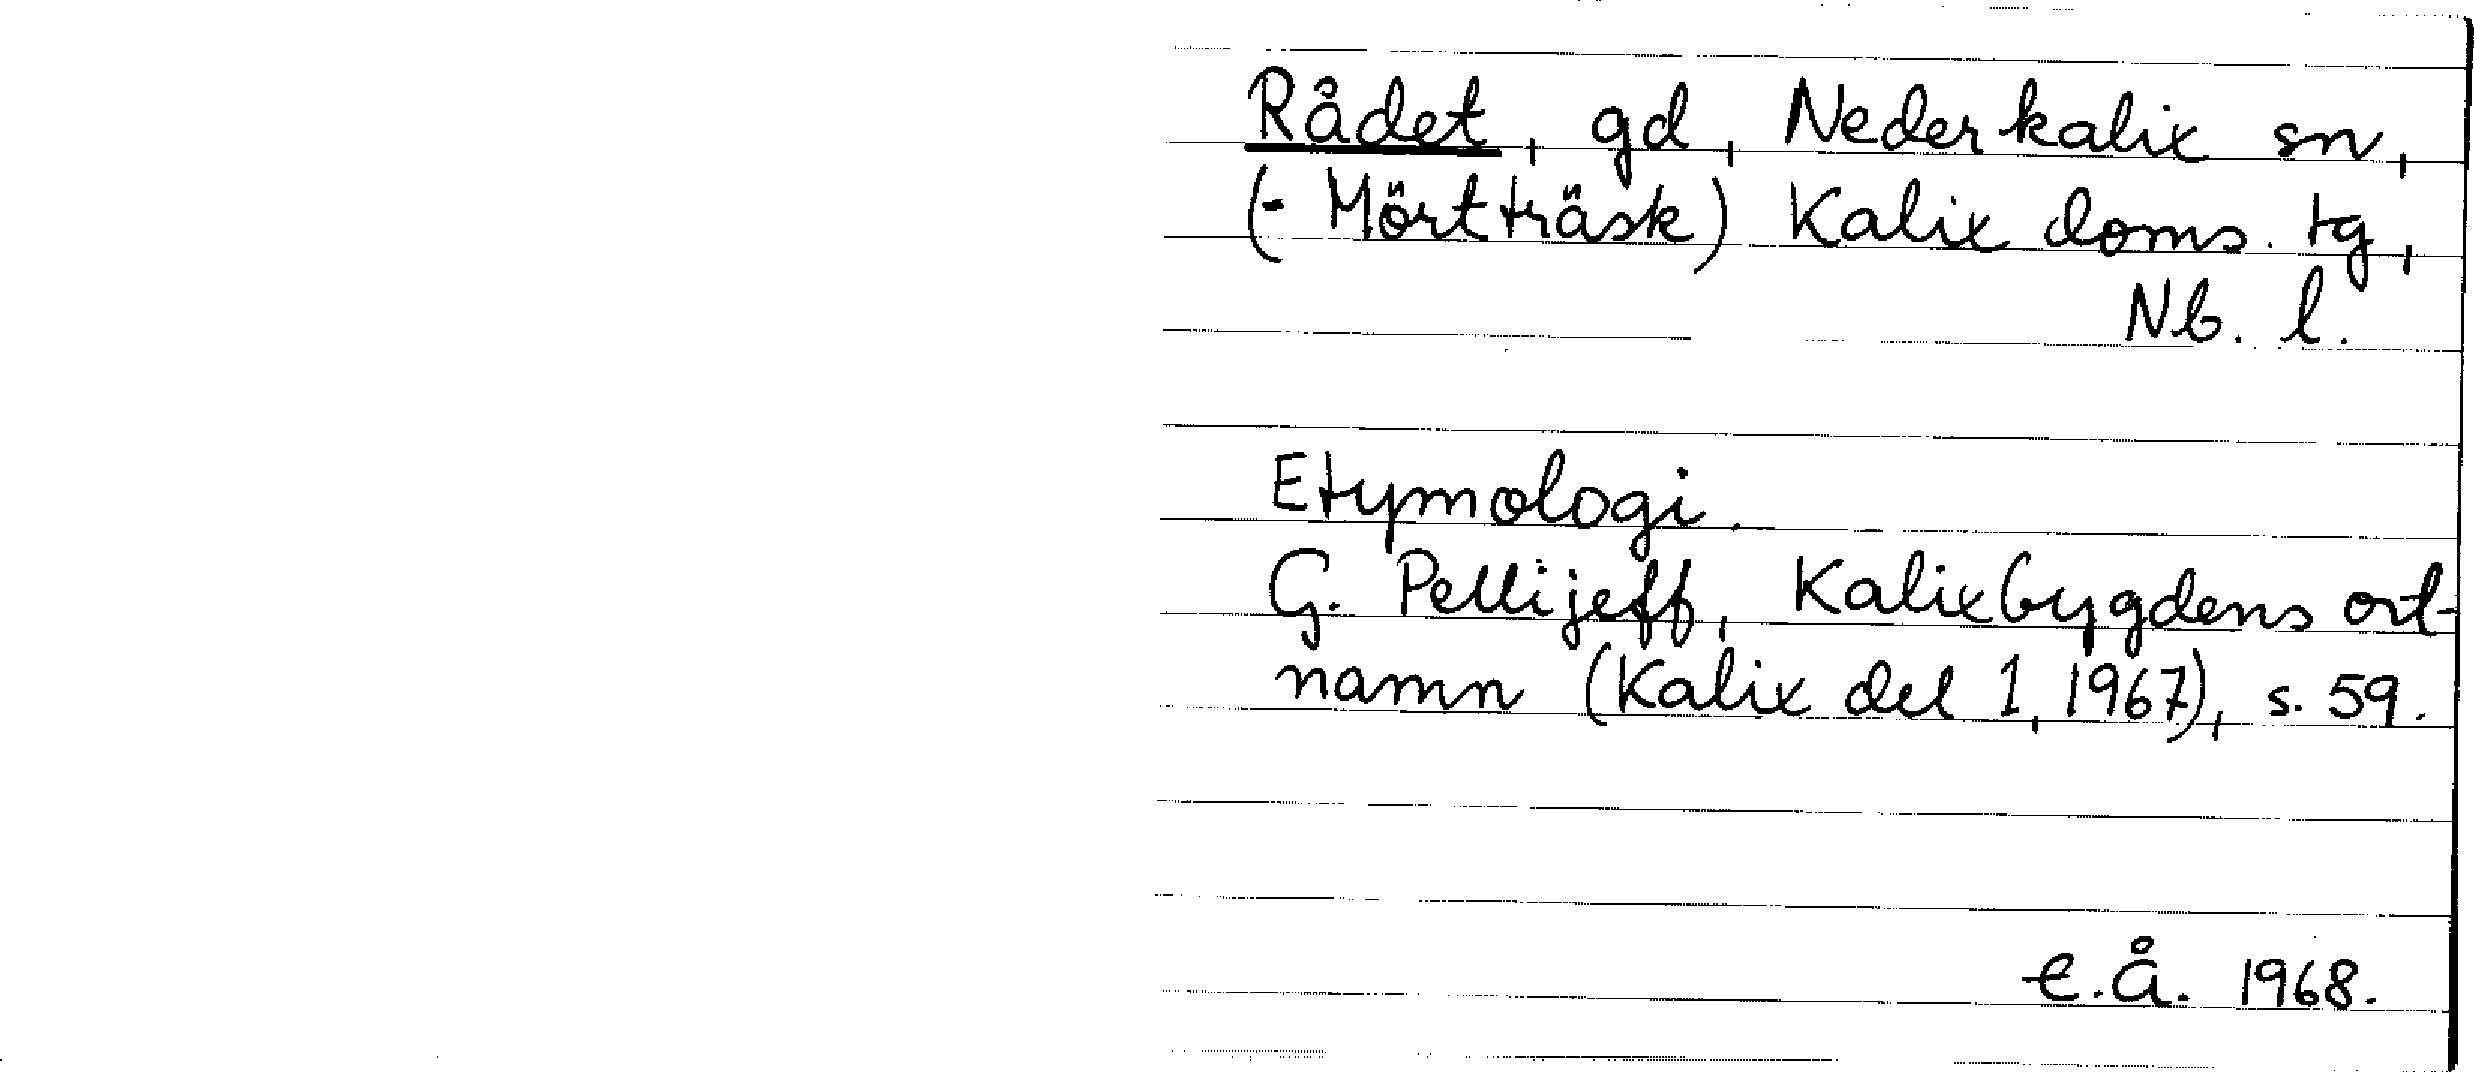 Rådet, gd, Nederkalix sn,
(- Mörtträsk) Kalix doms. tg,
Nb. l.
Etymologi.
G. Pellijeff, Kalixbygdens ort-
namn (Kalix del 1, 1967), s. 59.
e.å. 1968.